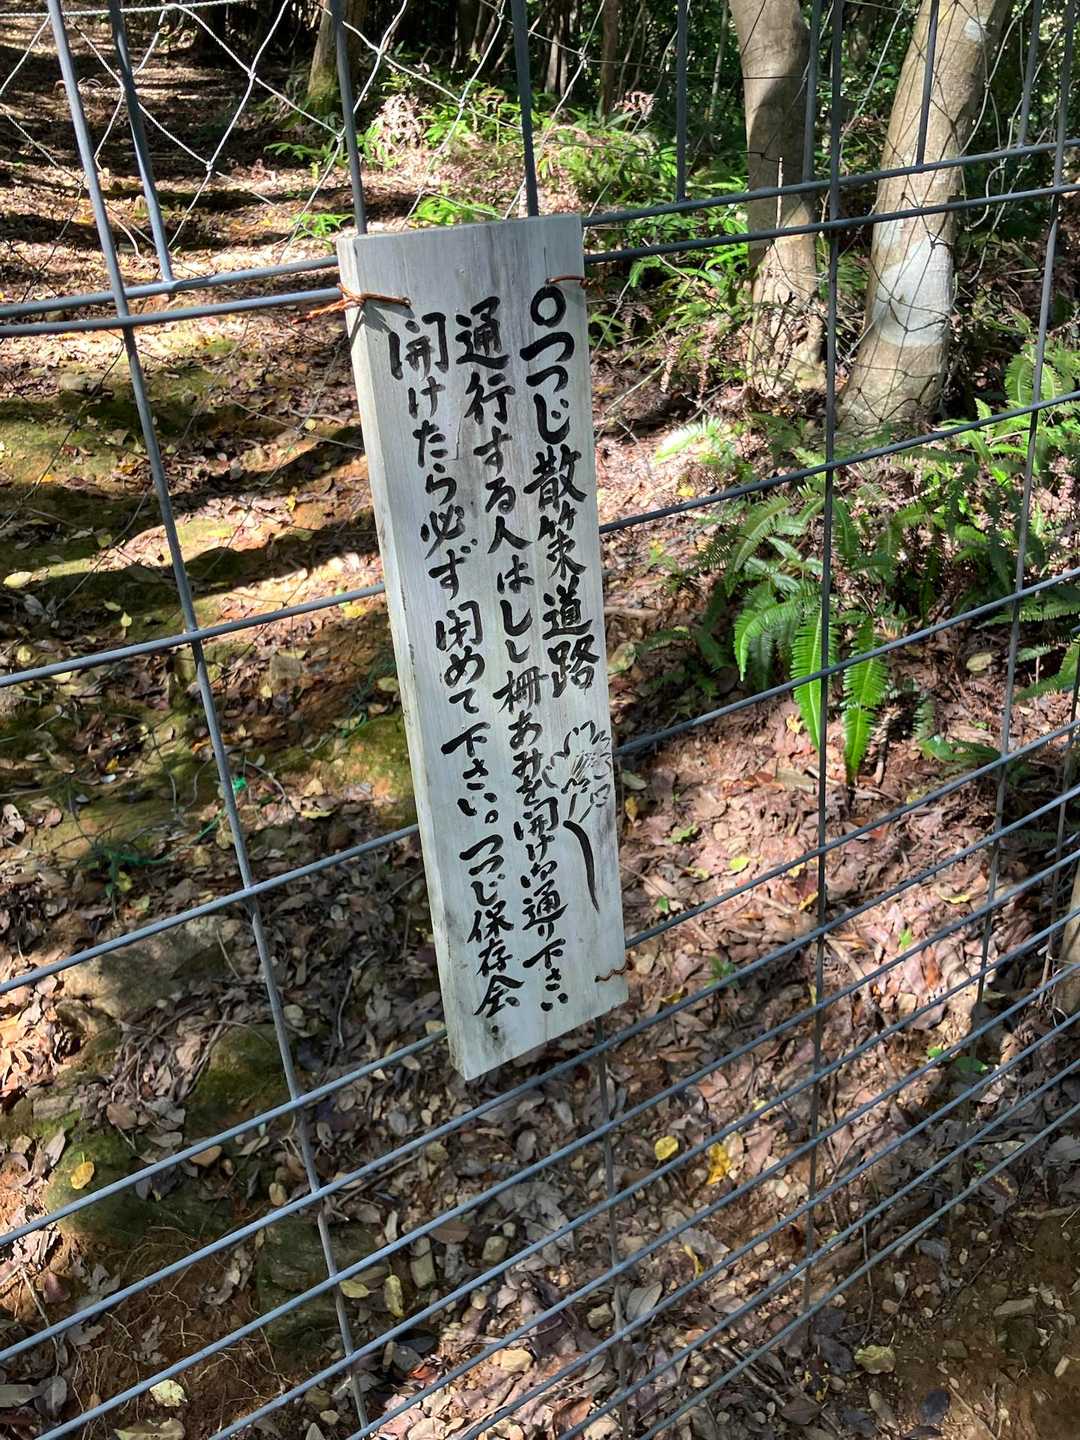 ○つつじ散策道路
通行する人はしし柵あみを開け通り下さい
開けたら必ず閉めて下さい。つつじ保存会.